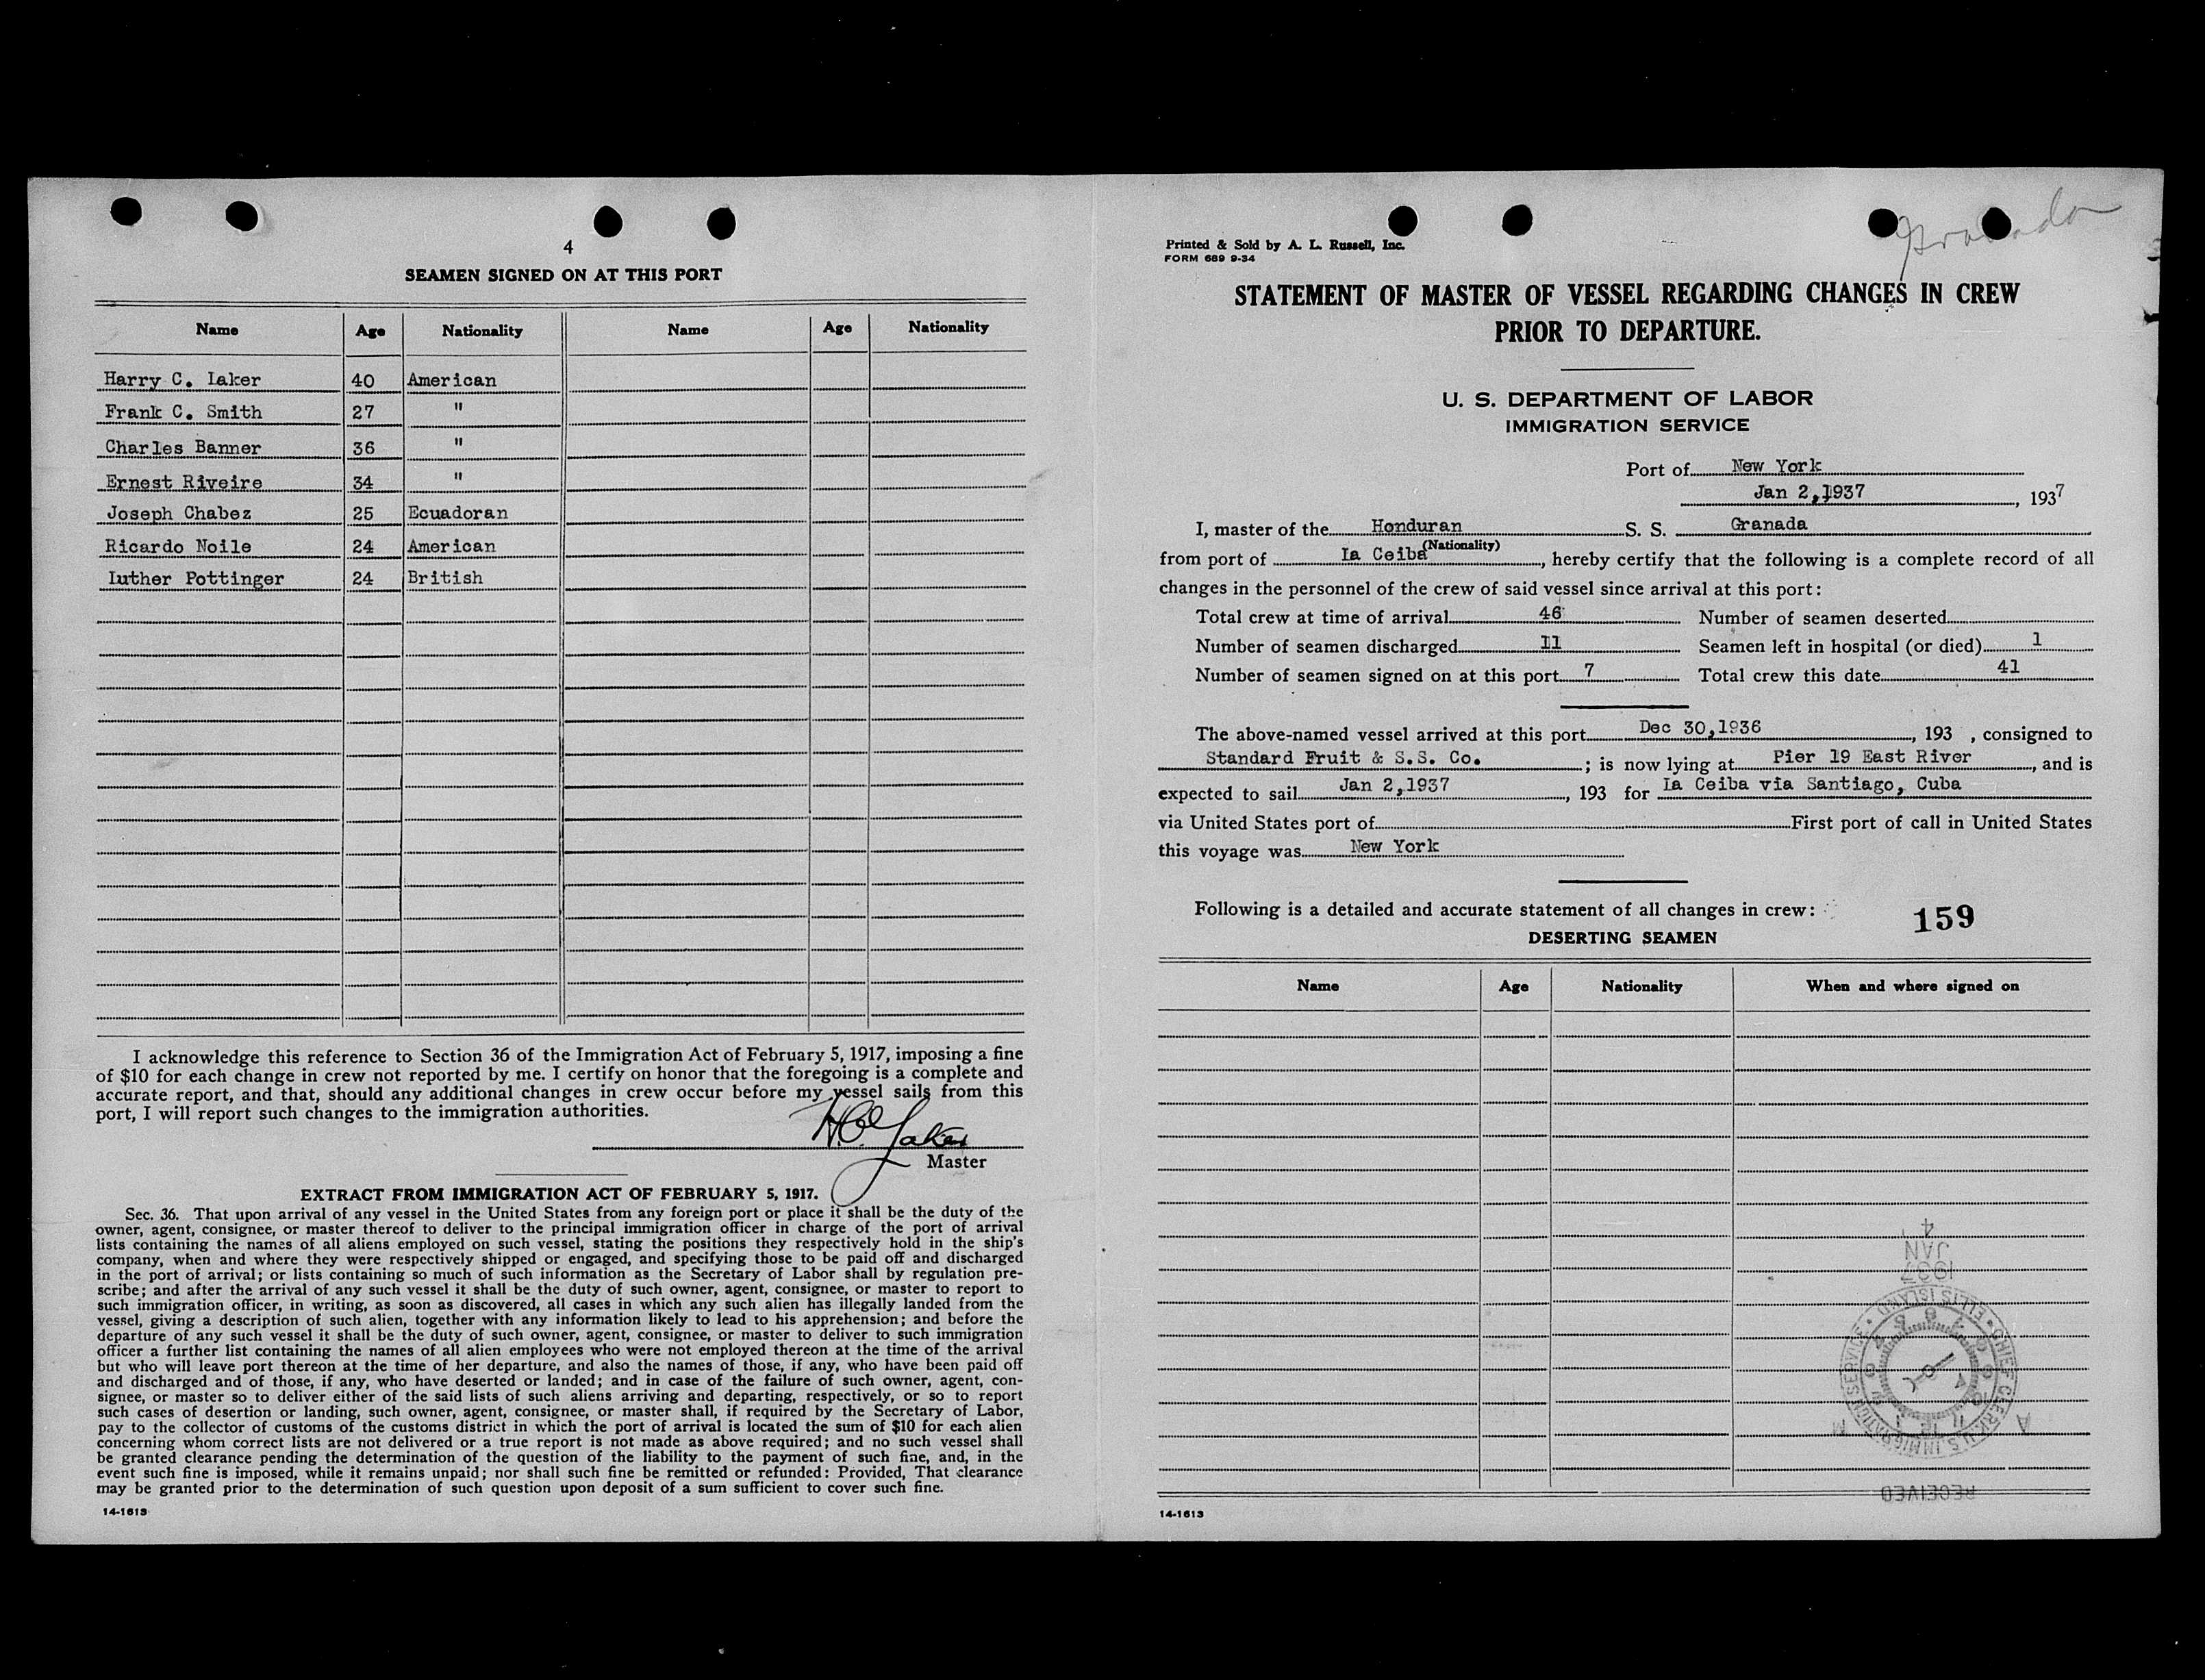 4
SEAMEN SIGNED ON AT THIS PORT
Name Age Nationality Name Age Nationality
Harry C. Iaker 40 American
Frank C. Smith 27 "
Charles Banner 36 "
Ernest Riveire 34 "
Joseph Chabez 25 Ecuadoran
Ricardo Noile 24 American
Iuther Pottinger 24 British
I acknowledge this reference to Section 36 of the Immigration Act of February 5, 1917, imposing a fine
of $10 for each change in crew not reported by me. I certify on honor that the foregoing is a complete and
accurate report, and that, should any additional changes in crew occur before my vessel sails from this
port, I will report such changes to the immigration authorities.
Master
EXTRACT FROM IMMIGRATION ACT OF FEBRUARY 5, 1917.
Sec. 36. That upon arrival of any vessel in the United States from any foreign port or place it shall be the duty of the
owner, agent, consignee, or master thereof to deliver to the principal immigration officer in charge of the port of arrival
lists containing the names of all aliens employed on such vessel, stating the positions they respectively hold in the ship's
company, when and where they were respectively shipped or engaged, and specifying those to be paid off and discharged
in the port of arrival; or lists containing so much of such information as the Secretary of Labor shall by regulation pre-
scribe; and after the arrival of any such vessel it shall be the duty of such owner, agent, consignee, or master to report to
such immigration officer, in writing, as soon as discovered, all cases in which any such alien has illegally landed from the
vessel, giving a description of such alien, together with any information likely to lead to his apprehension; and before the
departure of any such vessel it shall be the duty of such owner, agent, consignee, or master to deliver to such immigration
officer a further list containing the names of all alien employees who were not employed thereon at the time of the arrival
but who will leave port thereon at the time of her departure, and also the names of those, if any, who have been paid off
and discharged and of those, if any, who have deserted or landed; and in case of the failure of such owner, agent, con-
signee, or master so to deliver either of the said lists of such aliens arriving and departing, respectively, or so to report
such cases of desertion or landing, such owner, agent, consignee, or master shall, if required by the Secretary of Labor,
pay to the collector of customs of the customs district in which the port of arrival is located the sum of $10 for each alien
concerning whom correct lists are not delivered or a true report is not made as above required; and no such vessel shall
be granted clearance pending the determination of the question of the liability to the payment of such fine, and, in the
event such fine is imposed, while it remains unpaid; nor shall such fine be remitted or refunded: Provided, That clearance
may be granted prior to the determination of such question upon deposit of a sum sufficient to cover such fine.
14-1613
Granada
Printed & Sold by A. L. Russell, Inc.
FORM 689 9-34
STATEMENT OF MASTER OF VESSEL REGARDING CHANGES IN CREW
PRIOR TO DEPARTURE.
U. S. DEPARTMENT OF LABOR
IMMIGRATION SERVICE
Port of New York
Jan 2,1937, 1937
I, master of the Honduran S. S. Granada
(Nationality)
from port of Ia Ceiba, hereby certify that the following is a complete record of all
changes in the personnel of the crew of said vessel since arrival at this port:
Total crew at time of arrival 46 Number of seamen deserted
Number of seamen discharged 11 Seamen left in hospital (or died) 1
Number of seamen signed on at this port 7 Total crew this date 41
The above-named vessel arrived at this port Dec 30,1936, 193 , consigned to
Standard Fruit & S.S. Co. ; is now lying at Pier 19 East River, and is
expected to sail Jan 2,1937, 193 for Ia Ceiba via Santiago, Cuba
via United States port of First port of call in United States
this voyage was New York
Following is a detailed and accurate statement of all changes in crew:
159
DESERTING SEAMEN
Name Age Nationality When and where signed on
RECEIVED
A M
CHIEF CLERK U.S. IMMIGRATION SERVICE • ELLIS ISLAND •
1937
JAN
4
14-1613